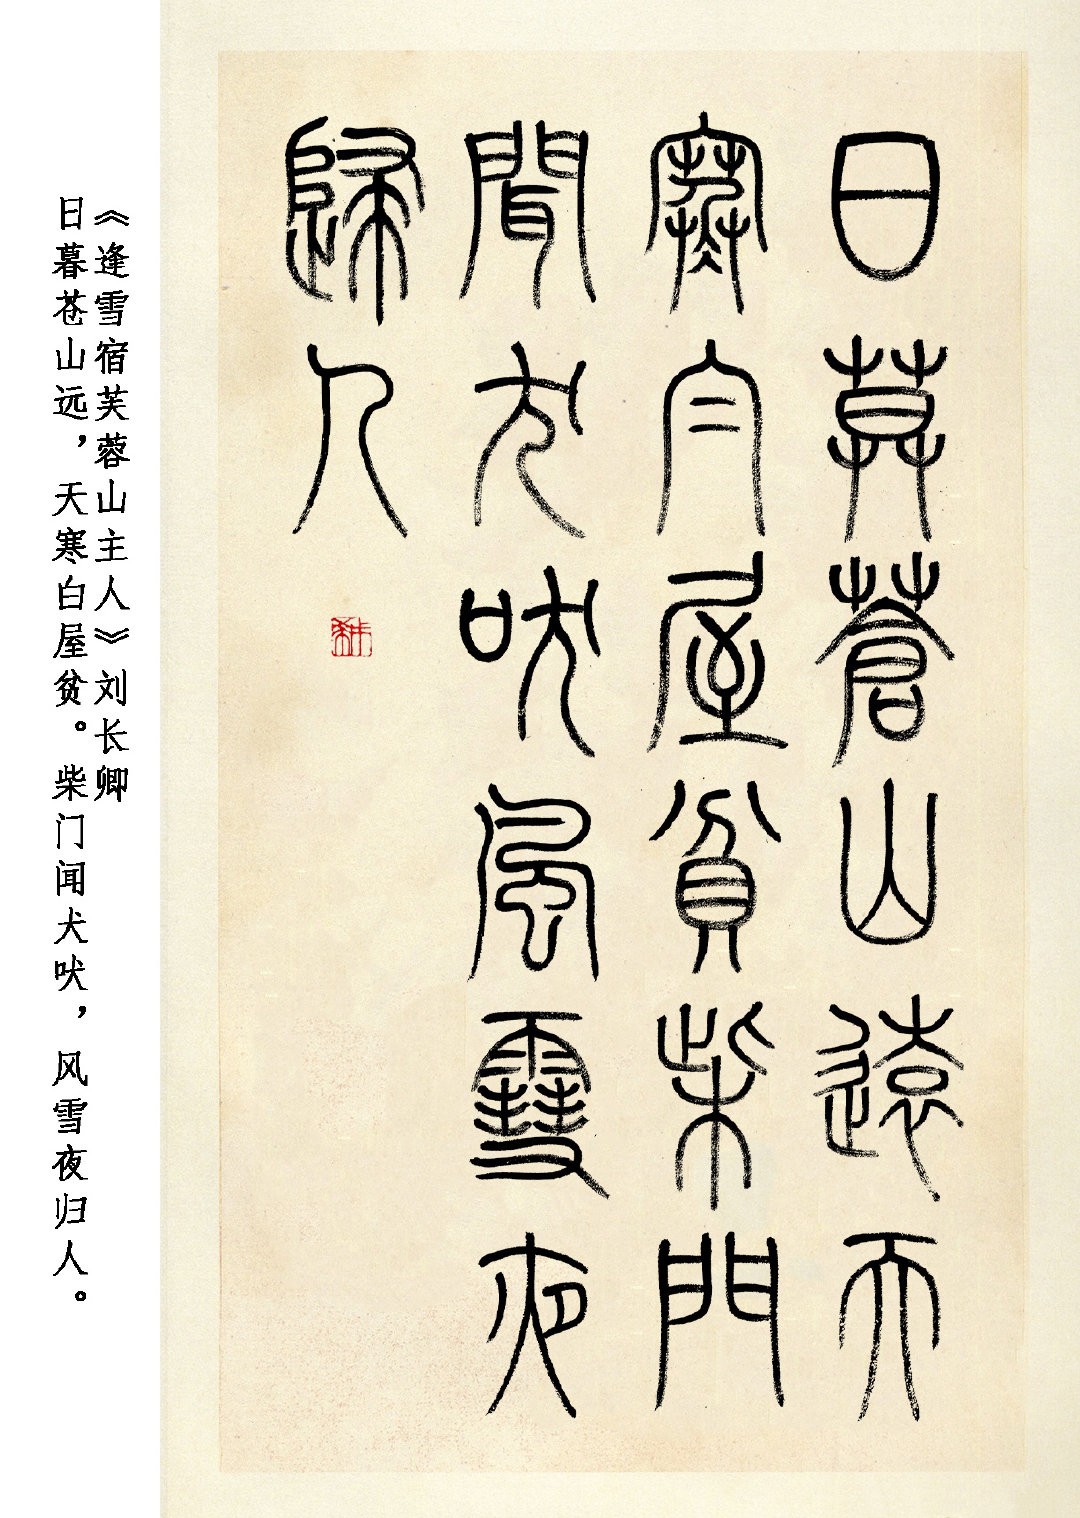 日莫蒼山遠天
寒白屋貧柴門
聞犬吠風雪夜
歸人
《逢雪宿芙蓉山主人》刘长卿
日暮苍山远，天寒白屋贫。柴门闻犬吠，风雪夜归人。